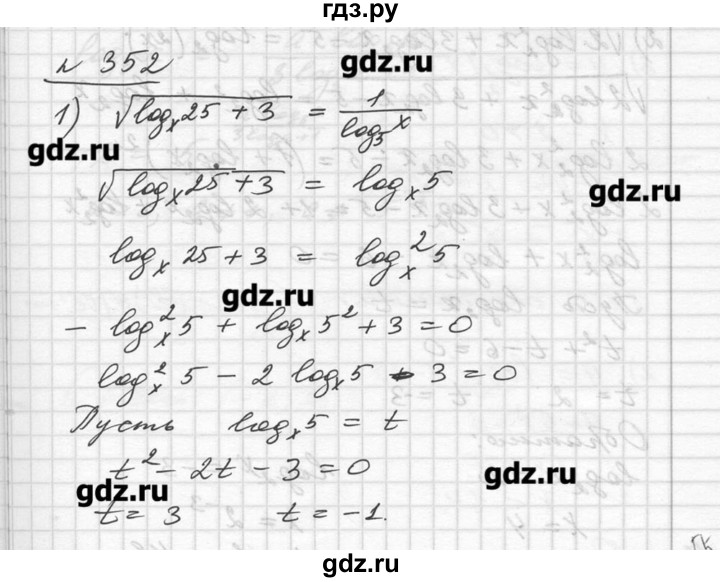 гдз.ру
№ 352
gdz.ru
1) √(logₓ25 + 3) = 1/log₅x
gdz.ru
√(logₓ25 + 3) = logₓ5
gdz.ru
logₓ25 + 3 = logₓ²5
gdz.ru
− logₓ²5 + logₓ5² + 3 = 0
logₓ²5 − 2 logₓ5 − 3 = 0
Пусть logₓ5 = t
t² − 2t − 3 = 0
gdz.ru
gdz.ru
t = 3 t = −1.
gdz.ru